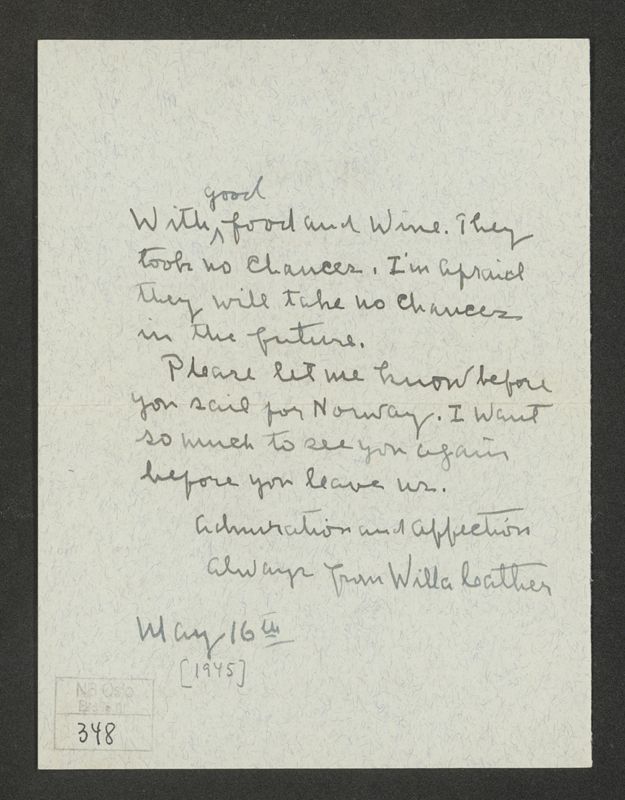 good
With ‸ food and Wine. They
took no chances. I'm afraid
they will take no chances
in the future.
Please let me know before
you sail for Norway. I want
so much to see you again
before you leave us.
Admiration and affection
always from Willa Cather
May 16th
[1945]
NB Oslo
348